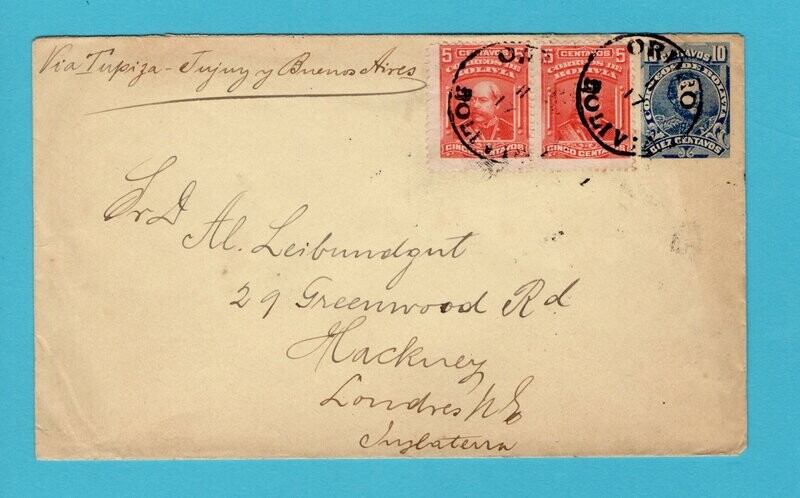 Via Tupiza - Jujuy y Buenos Aires
5 CENTAVOS 5
CORREOS DE
BOLIVIA
CINCO CENTAVOS
5 CENTAVOS 5
CORREOS DE
BOLIVIA
CINCO CENTA
CENTAVOS 10
CORREOS DE BOLIVIA
DIEZ CENTAVOS
ORURO
BOLIVIA
Sr D
Al. Leibundgut
29 Greenwood Rd
Hackney
Londres N E
Inglaterra